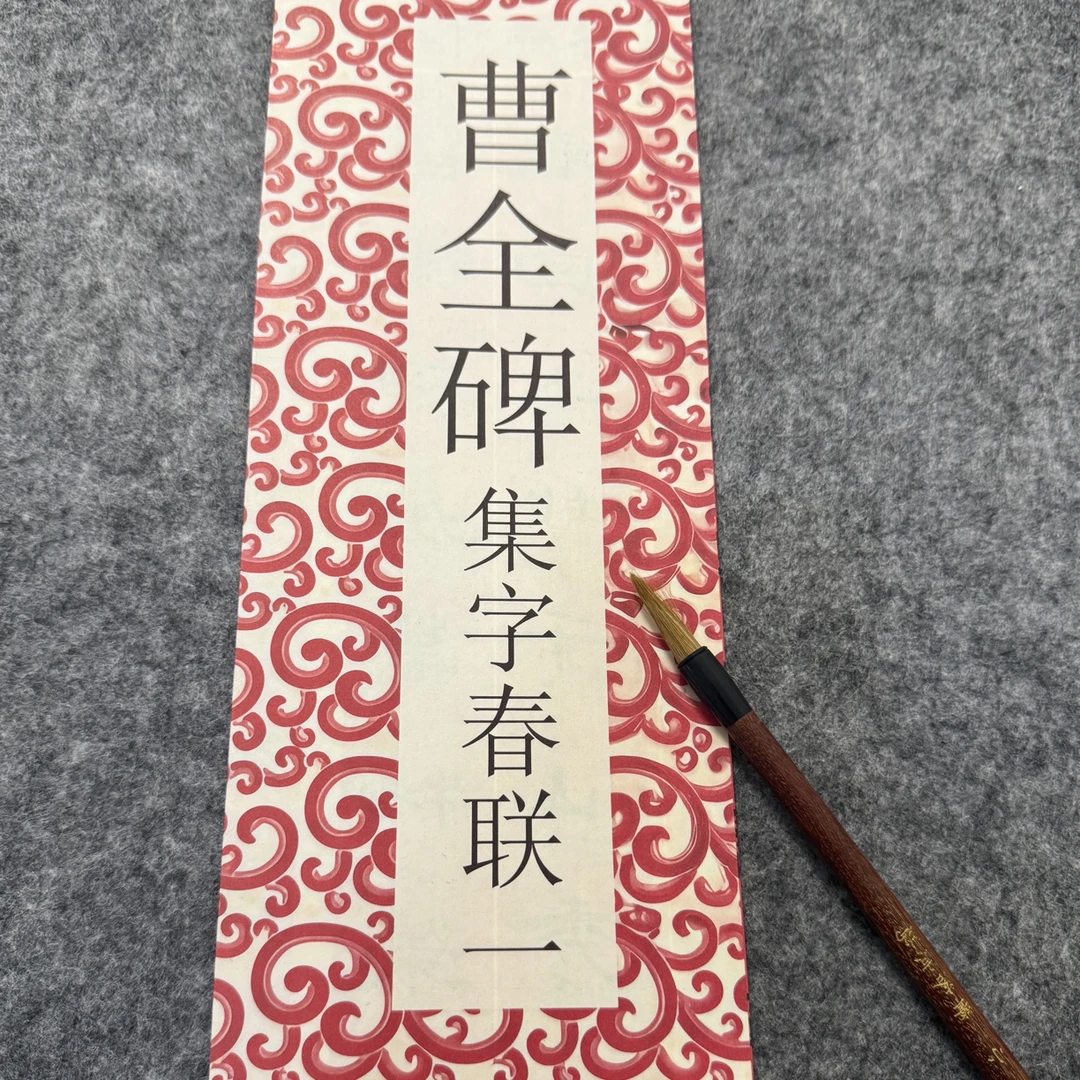 曹全碑集字春联一